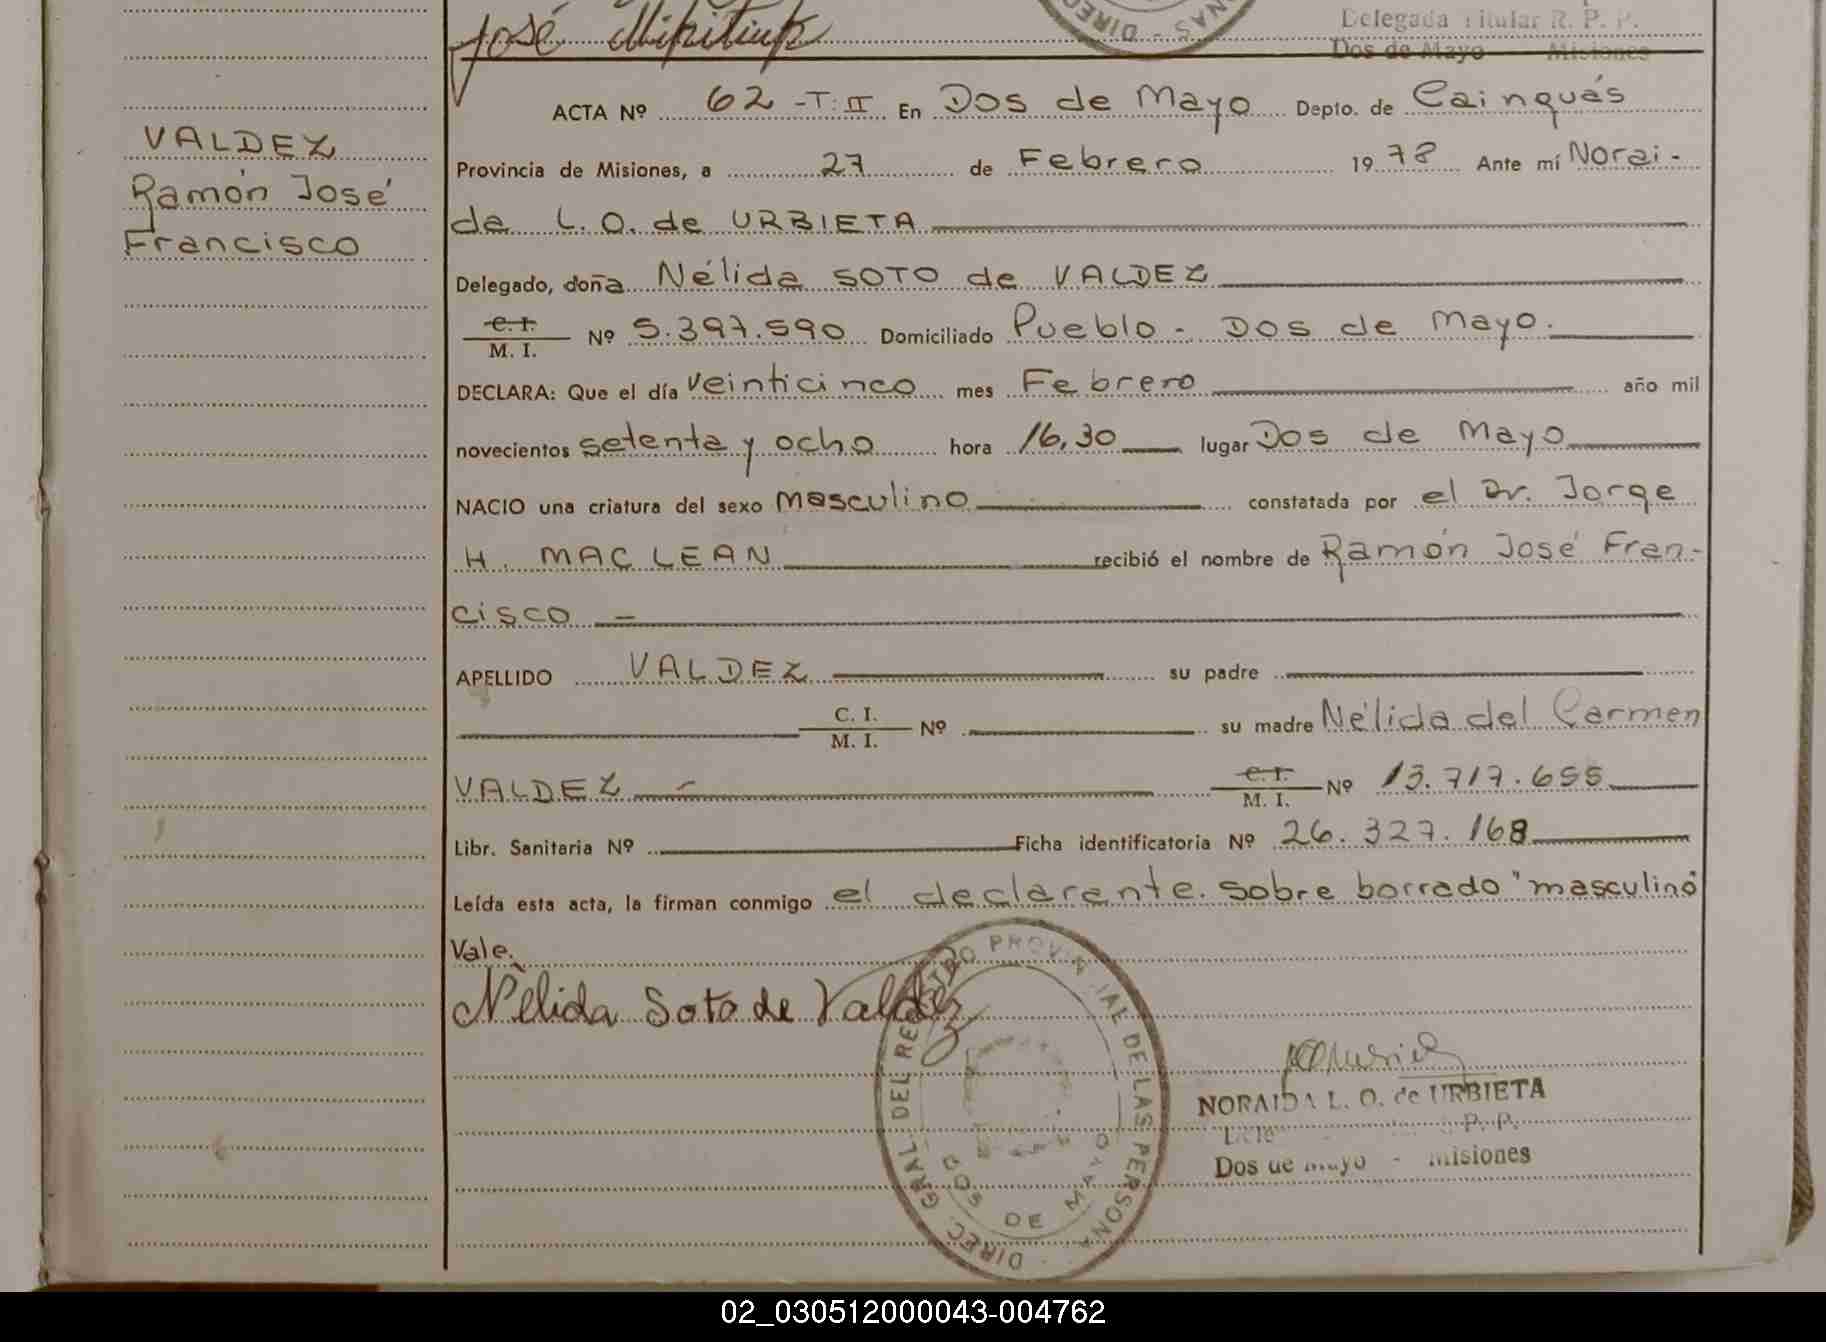 José Mikitiuk
DIREC
NAS
Delegada Titular R. P. P.
Dos de Mayo Misiones
VALDEZ
Ramón José
Francisco
ACTA Nº 62 -T: II En Dos de Mayo Depto. de Cainguás
Provincia de Misiones, a 27 de Febrero 1978 Ante mí Norai-
da L. O. de URBIETA
Delegado, doña Nélida SOTO de VALDEZ
C. I. / M. I. Nº 5.397.590 Domiciliado Pueblo - Dos de Mayo.
DECLARA: Que el día veinticinco mes Febrero año mil
novecientos setenta y ocho hora 16,30 lugar Dos de Mayo
NACIO una criatura del sexo masculino constatada por el Dr. Jorge
H. MAC LEAN recibió el nombre de Ramón José Fran-
cisco —
APELLIDO VALDEZ su padre
C. I. / M. I. Nº su madre Nélida del Carmen
VALDEZ — C. I. / M. I. Nº 13.717.655
Libr. Sanitaria Nº Ficha identificatoria Nº 26.327.168
Leída esta acta, la firman conmigo el declarante. sobre borrado "masculino"
Vale.
Nélida Soto de Valdez
DIREC. GRAL. DEL REGISTRO PROVINCIAL DE LAS PERSONAS
DOS DE MAYO
NORAIDA L. O. de URBIETA
P. P.
Dos de Mayo - Misiones
02_030512000043-004762